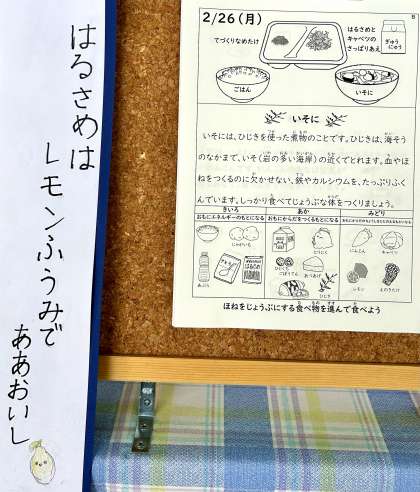 はるさめは
レモンふうみで
ああおいし
2/26(月)
てづくりなめたけ
はるさめと
キャベツの
さっぱりあえ
ぎゅう
にゅう
ごはん
いそに
いそに
いそには、ひじきを使った煮物のことです。ひじきは、海そう
のなかまで、いそ(岩の多い海岸)の近くでとれます。血やほ
ねをつくるのに欠かせない、鉄やカルシウムを、たっぷりふく
んでいます。しっかり食べてじょうぶな体をつくりましょう。
きいろ
あか
みどり
おもにエネルギーのもとになる
おもにからだをつくるもとになる
じゃがいも
あぶら
さとう
はるさめ
とりにく
だいず
あぶらあげ
ひじき
にんじん
キャベツ
レモン
えのきたけ
ほねをじょうぶにする食べ物を進んで食べよう